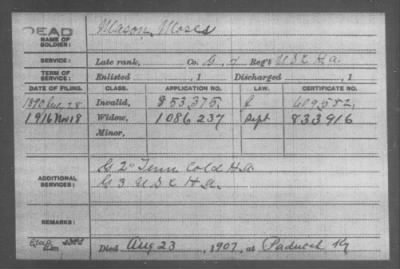 DEAD
NAME OF SOLDIER: Mason, Moses
SERVICE: Late rank, Co. G, Reg't U.S.C.H.A.
TERM OF SERVICE: Enlisted , 1 Discharged , 1
DATE OF FILING. CLASS. APPLICATION NO. LAW. CERTIFICATE NO.
1890 28 Invalid, 853,375. 609,582.
1916 Nov 18 Widow, 1086237 Sept 833916
Minor,
ADDITIONAL SERVICES: G 2" Tenn Cold H.A.
G 3 U.S.C H.A.
REMARKS:
Died Aug 23, 1907, at Paducah Ky